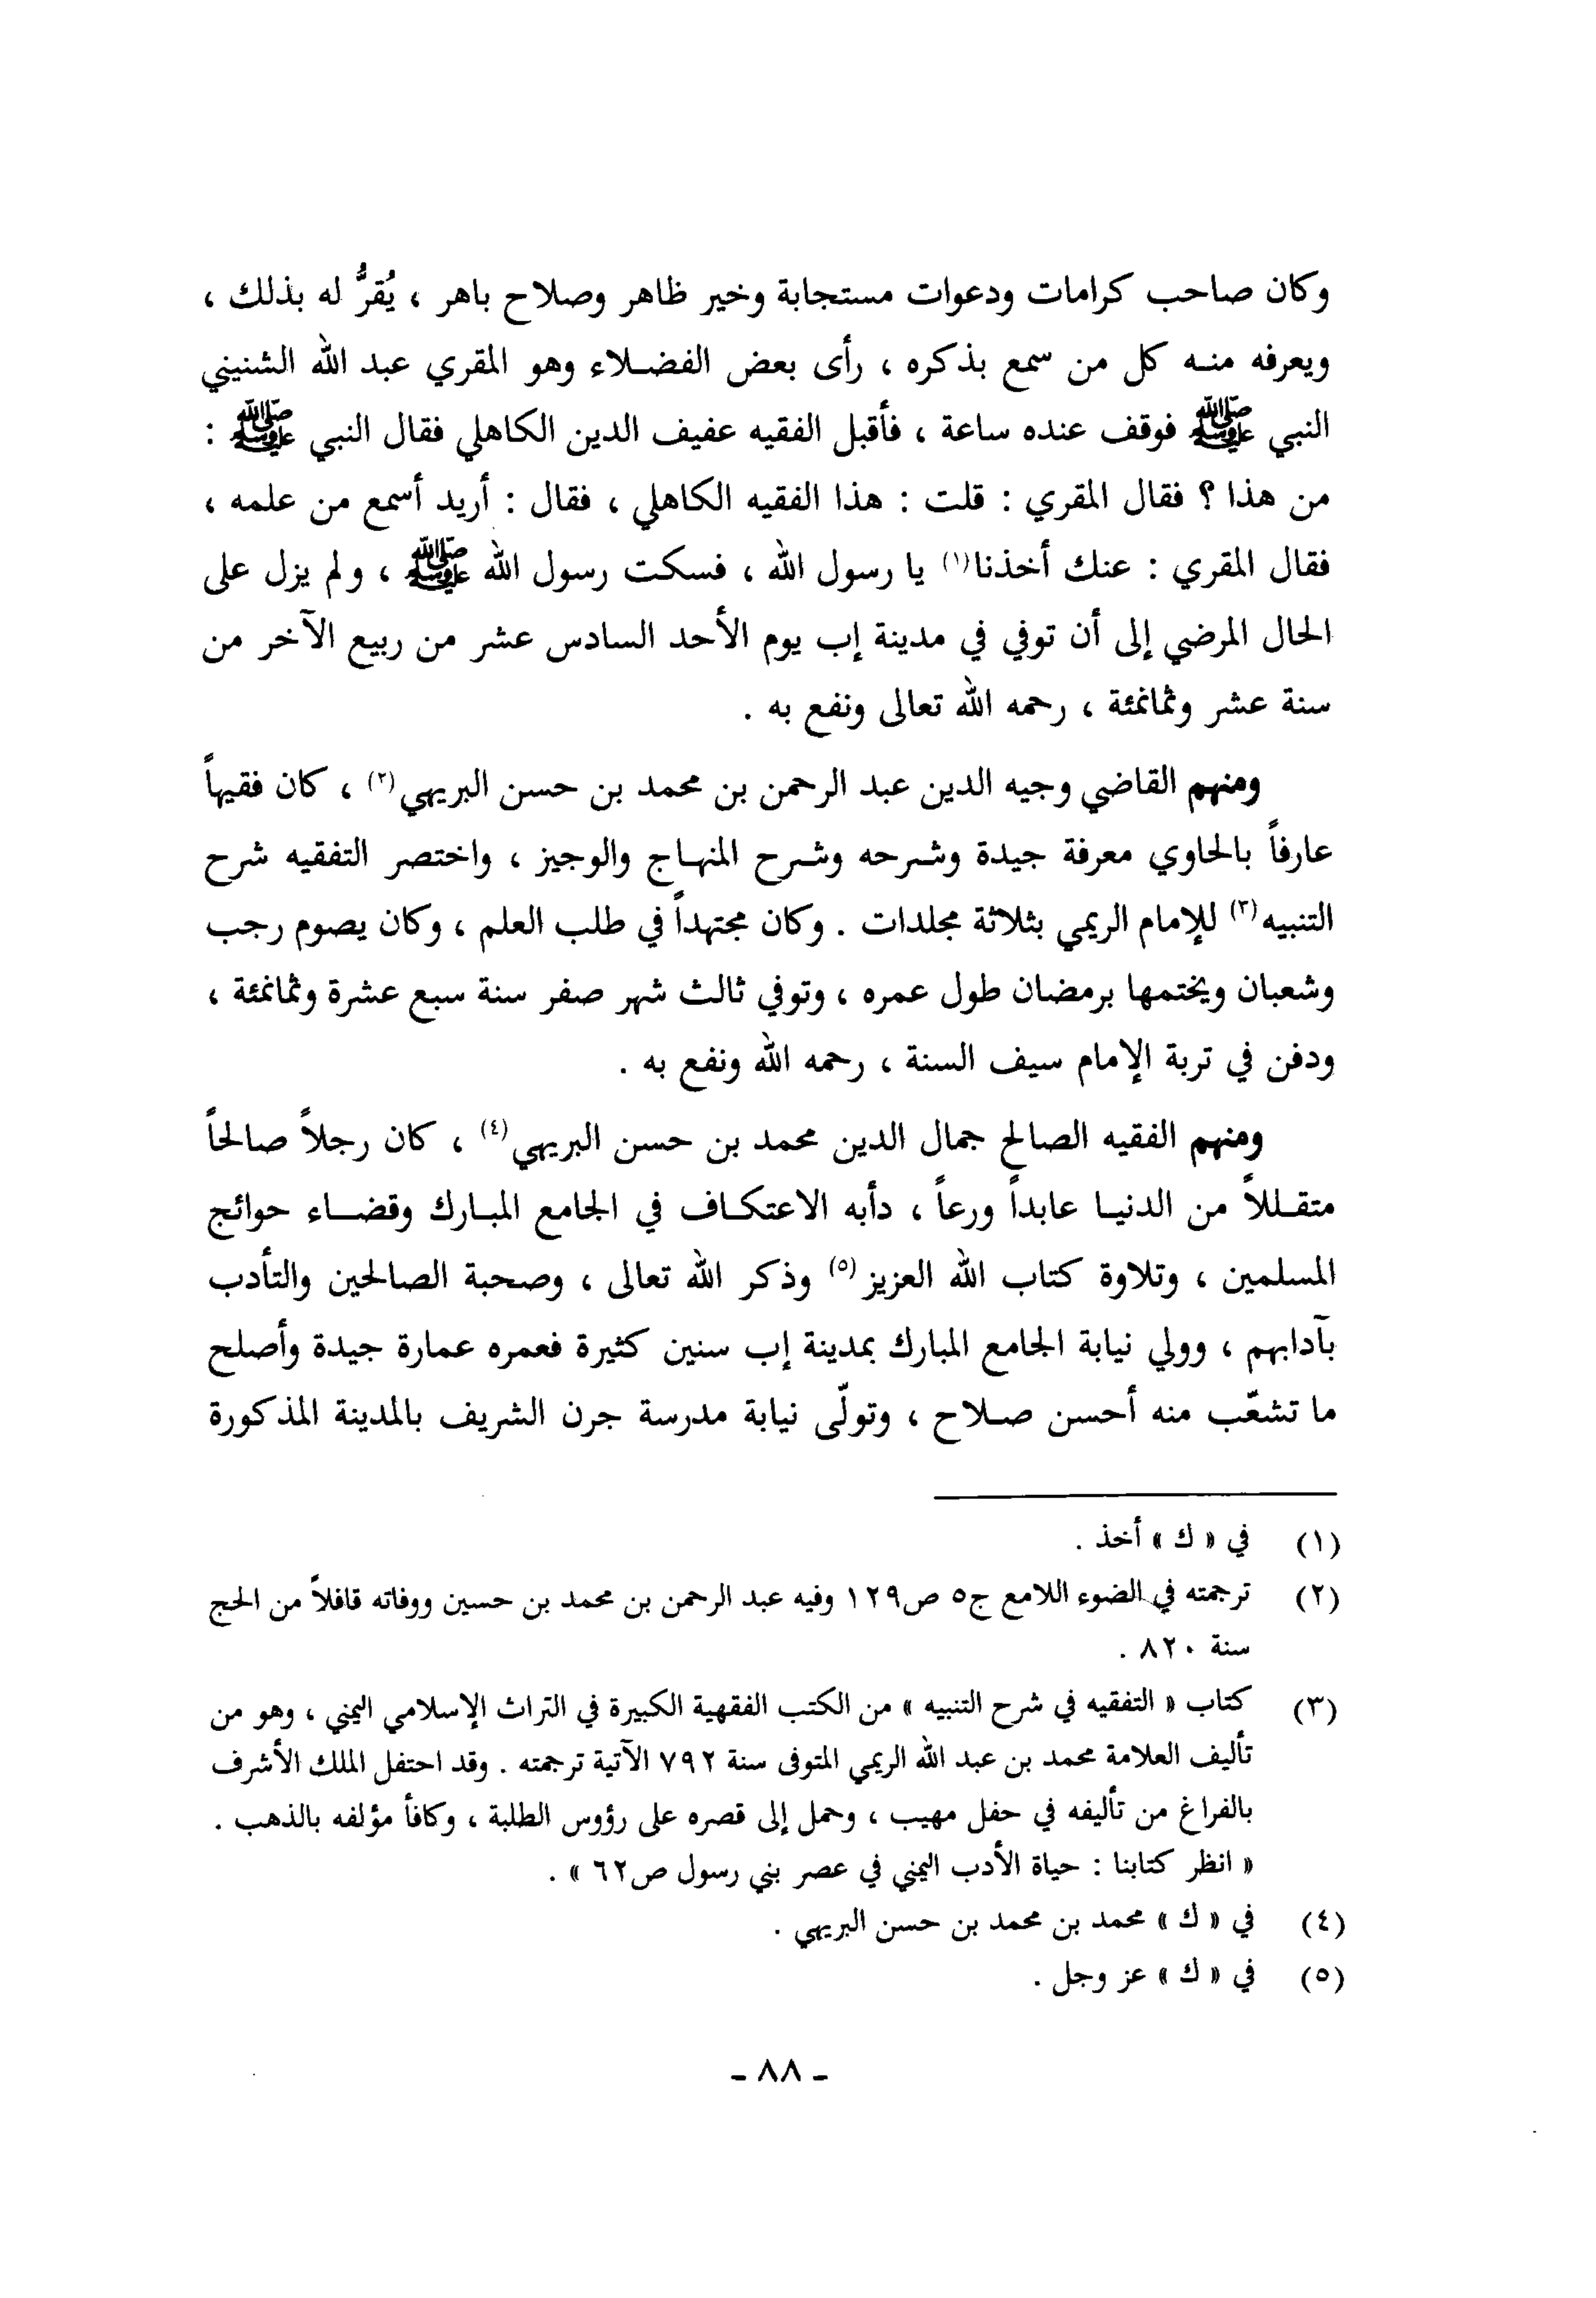 وكان صاحب كرامات ودعوات مستجابة وخير ظاهر وصلاح باهر ، يُقرُّ له بذلك ،
ويعرفه منه كل من سمع بذكره ، رأى بعض الفضلاء وهو المقري عبد الله الشنيني
النبي ﷺ فوقف عنده ساعة ، فأقبل الفقيه عفيف الدين الكاهلي فقال النبي ﷺ :
من هذا ؟ فقال المقري : قلت : هذا الفقيه الكاهلي ، فقال : أريد أسمع من علمه ،
فقال المقري : عنك أخذنا(١) يا رسول الله ، فسكت رسول الله ﷺ ، ولم يزل على
الحال المرضي إلى أن توفي في مدينة إب يوم الأحد السادس عشر من ربيع الآخر من
سنة عشر وثمانمئة ، رحمه الله تعالى ونفع به .
ومنهم القاضي وجيه الدين عبد الرحمن بن محمد بن حسن البريهي(٢) ، كان فقيهاً
عارفاً بالحاوي معرفة جيدة وشرحه وشرح المنهاج والوجيز ، واختصر التفقيه شرح
التنبيه(٣) للإمام الريمي بثلاثة مجلدات . وكان مجتهداً في طلب العلم ، وكان يصوم رجب
وشعبان ويختمها برمضان طول عمره ، وتوفي ثالث شهر صفر سنة سبع عشرة وثمانمئة ،
ودفن في تربة الإمام سيف السنة ، رحمه الله ونفع به .
ومنهم الفقيه الصالح جمال الدين محمد بن حسن البريهي(٤) ، كان رجلاً صالحاً
متقللاً من الدنيا عابداً ورعاً ، دأبه الاعتكاف في الجامع المبارك وقضاء حوائج
المسلمين ، وتلاوة كتاب الله العزيز(٥) وذكر الله تعالى ، وصحبة الصالحين والتأدب
بآدابهم ، وولي نيابة الجامع المبارك بمدينة إب سنين كثيرة فعمره عمارة جيدة وأصلح
ما تشعّب منه أحسن صلاح ، وتولّى نيابة مدرسة جرن الشريف بالمدينة المذكورة
(١) في « ك » أخذ .
(٢) ترجمته في الضوء اللامع ج٥ ص١٢٩ وفيه عبد الرحمن بن محمد بن حسين ووفاته قافلاً من الحج
سنة ٨٢٠ .
(٣) كتاب « التفقيه في شرح التنبيه » من الكتب الفقهية الكبيرة في التراث الإسلامي اليمني ، وهو من
تأليف العلامة محمد بن عبد الله الريمي المتوفى سنة ٧٩٢ الآتية ترجمته . وقد احتفل الملك الأشرف
بالفراغ من تأليفه في حفل مهيب ، وحمل إلى قصره على رؤوس الطلبة ، وكافأ مؤلفه بالذهب .
« انظر كتابنا : حياة الأدب اليمني في عصر بني رسول ص٦٢ » .
(٤) في « ك » محمد بن محمد بن حسن البريهي .
(٥) في « ك » عز وجل .
- ٨٨ -